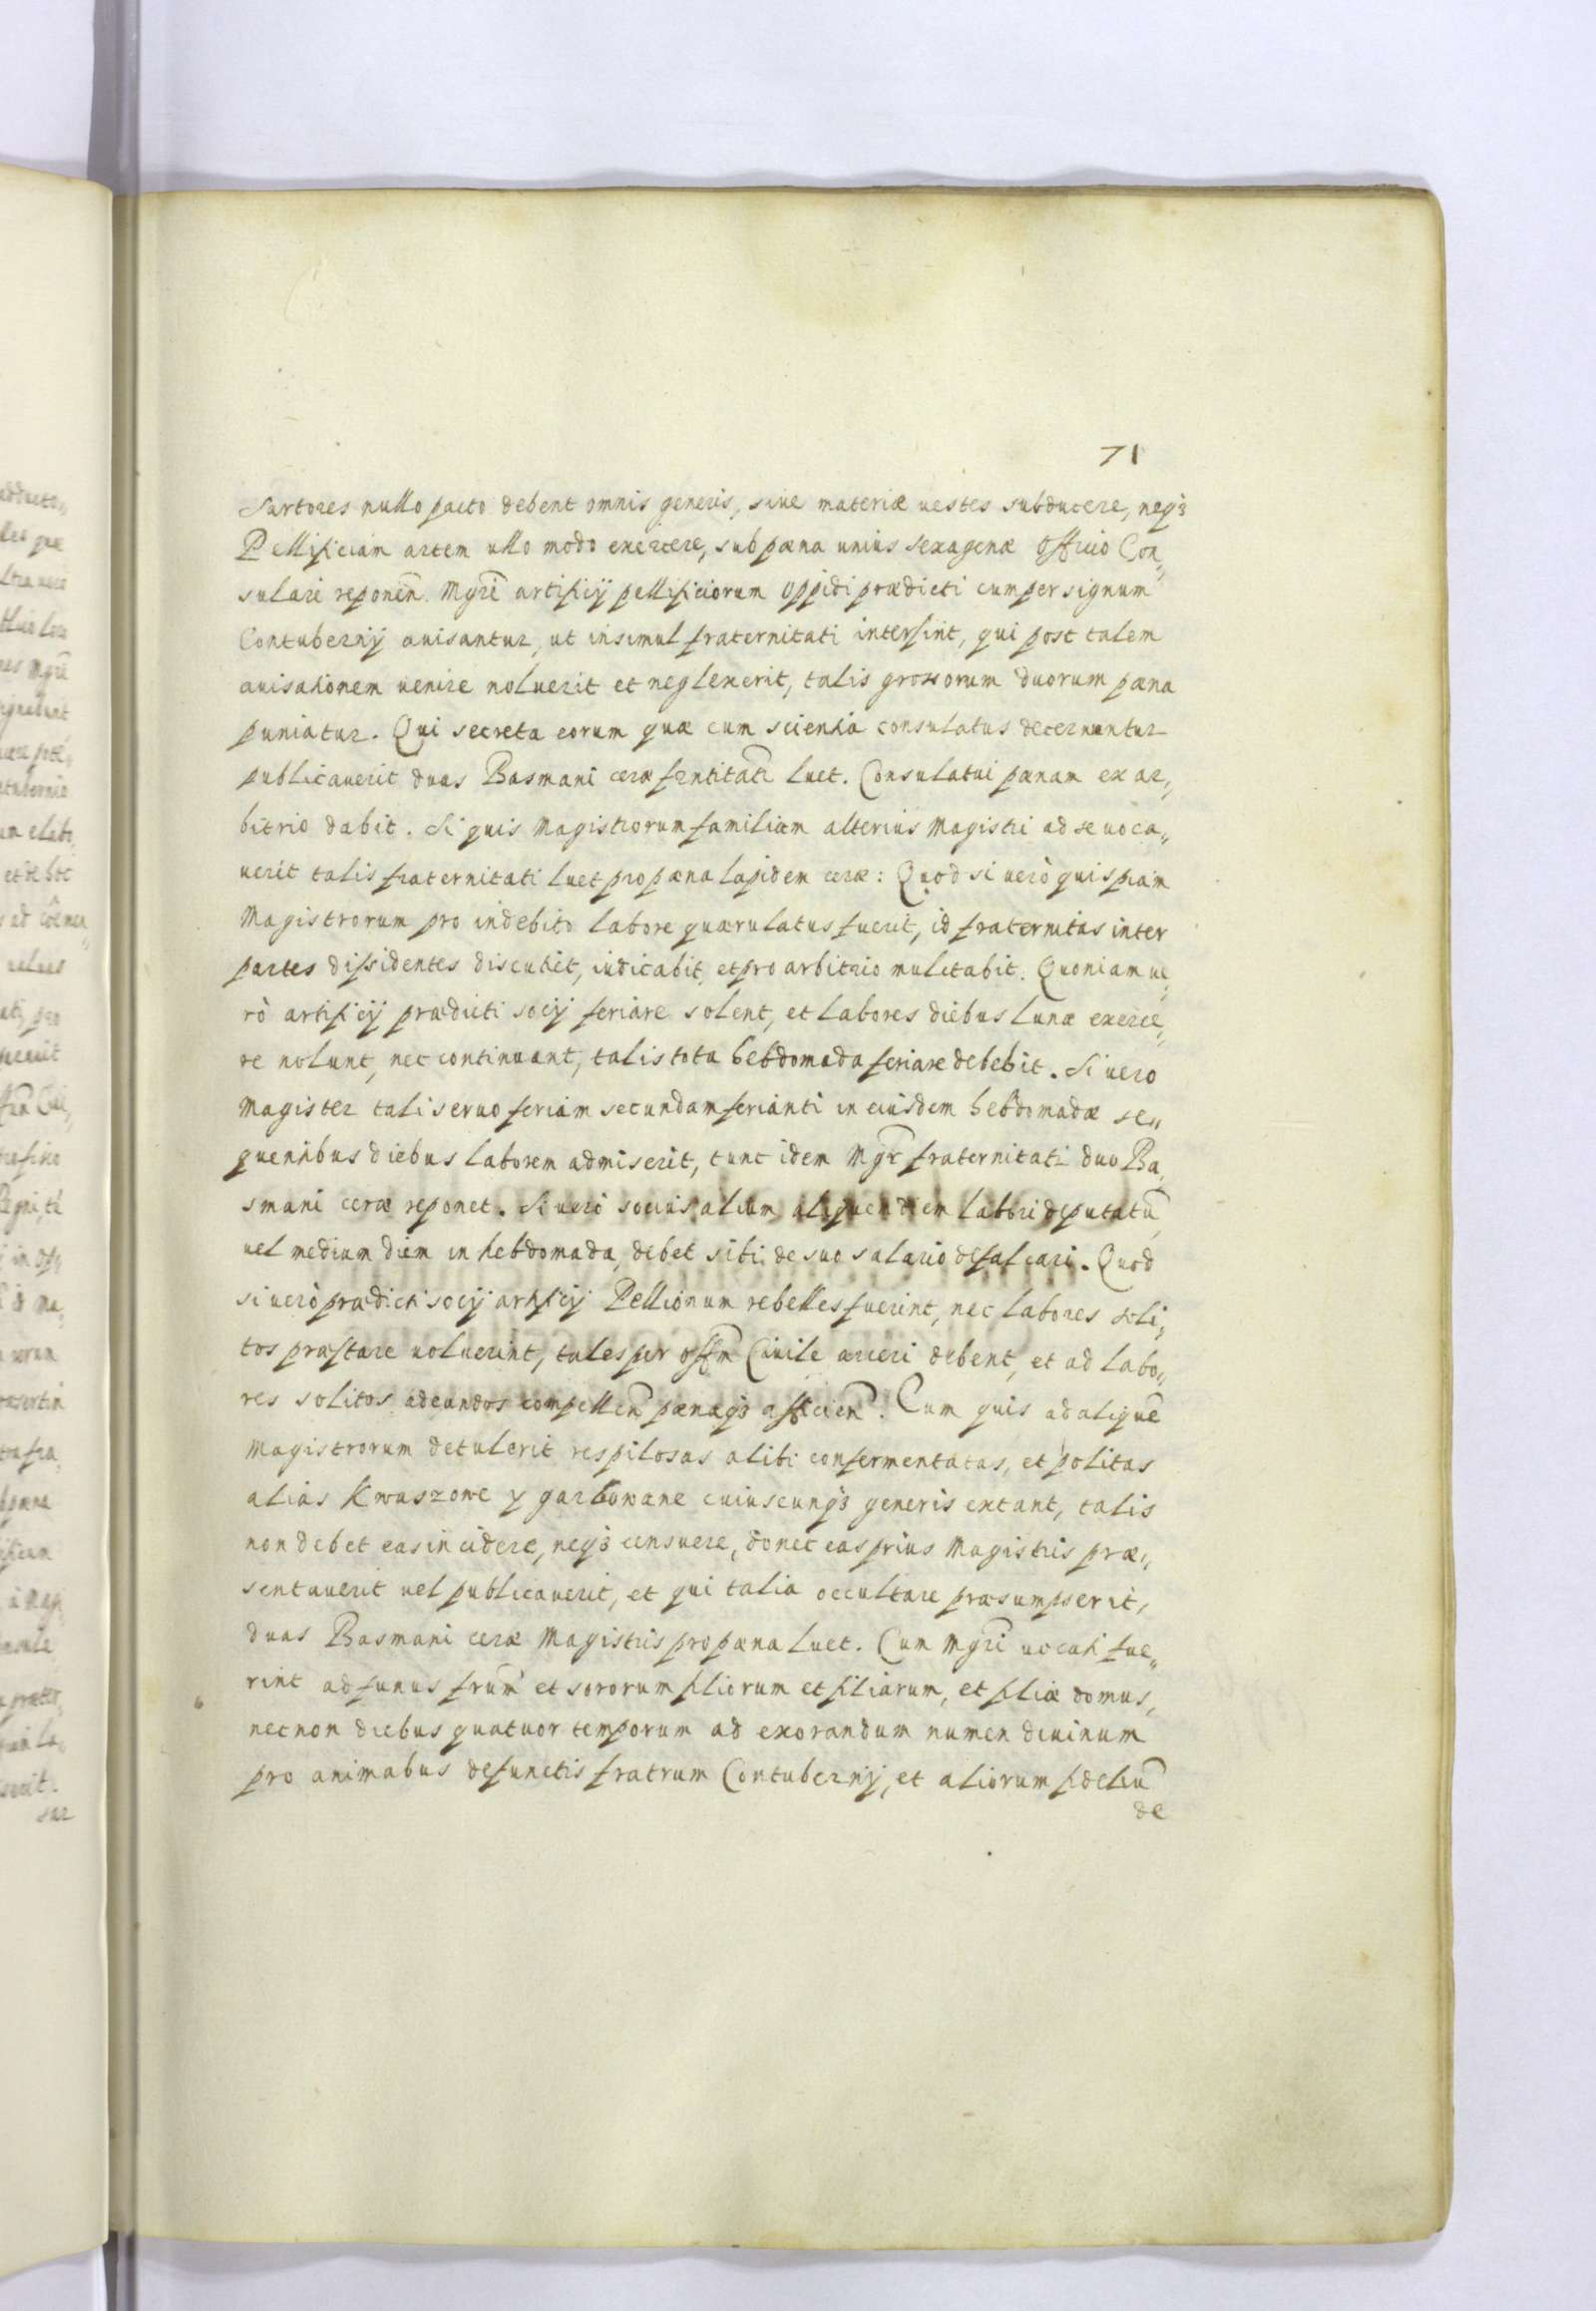 71
Sartores nullo pacto debent omnis generis, siue materiæ uestes subducere, neqꝫ
Pellificiam artem ullo modo exercere, sub pæna unius sexagenæ Officio Con„
sulari reponeñ. Mgri artificij pellificiorum Oppidi prædicti cum per signum
Contubernij auisantur, ut insimul fraternitati intersint, qui post talem
auisationem uenire noluerit et neglexerit, talis grossorum duorum pæna
puniatur. Qui secreta eorum quæ cum scientia consulatus decernuntur
publicauerit duas Basmani ceræ frntitati luet. Consulatui pænam ex ar„
bitrio dabit. Si quis Magistrorum familiam alterius Magistri ad se uoca„
uerit talis fraternitati luet pro pæna lapidem ceræ: Quod si uerò quispiam
Magistrorum pro indebito labore quærulatus fuerit, id fraternitas inter
partes dissidentes discutiet, iudicabit, et pro arbitrio mulctabit. Quoniam ue„
rò artificij prædicti socij feriare solent, et labores diebus lunæ exerce„
re nolunt, nec continuant, talis tota hebdomada feriare debebit. Si uero
Magister tali seruo feriam secundam ferianti in eiusdem hebdomadæ se„
quentibus diebus laborem admiserit, tunc idem Mgr̃ fraternitati duo Ba„
smani ceræ reponet. Si uero socius alium aliquem diem labori deputatū
uel medium diem in hebdomada, debet sibi de suo salario defalcari. Quod
si uerò prædicti socij artificij Pellionum rebelles fuerint, nec labores soli„
tos præstare uoluerint, tales per offm̃ Ciuile arceri debent, et ad labo„
res solitos adeundos compelleñ pænaqꝫ afficieñ. Cum quis ad aliquē
Magistrorum detulerit res pilosas alibi confermentatas, et politas
alias Kwaszone y garbowane cuiuscunqꝫ generis extant, talis
non debet eas incidere, neqꝫ consuere, donec eas prius Magistris præ„
sentauerit uel publicauerit, et qui talia occultare præsumpserit,
duas Basmani ceræ Magistris pro pæna luet. Cum Mgri uocati fue„
rint ad funus frum̃ et sororum filiorum et filiarum, et filiæ domus,
necnon diebus quatuor temporum ad exorandum numen diuinum
pro animabus defunctis fratrum Contubernij, et aliorum fideliū
de